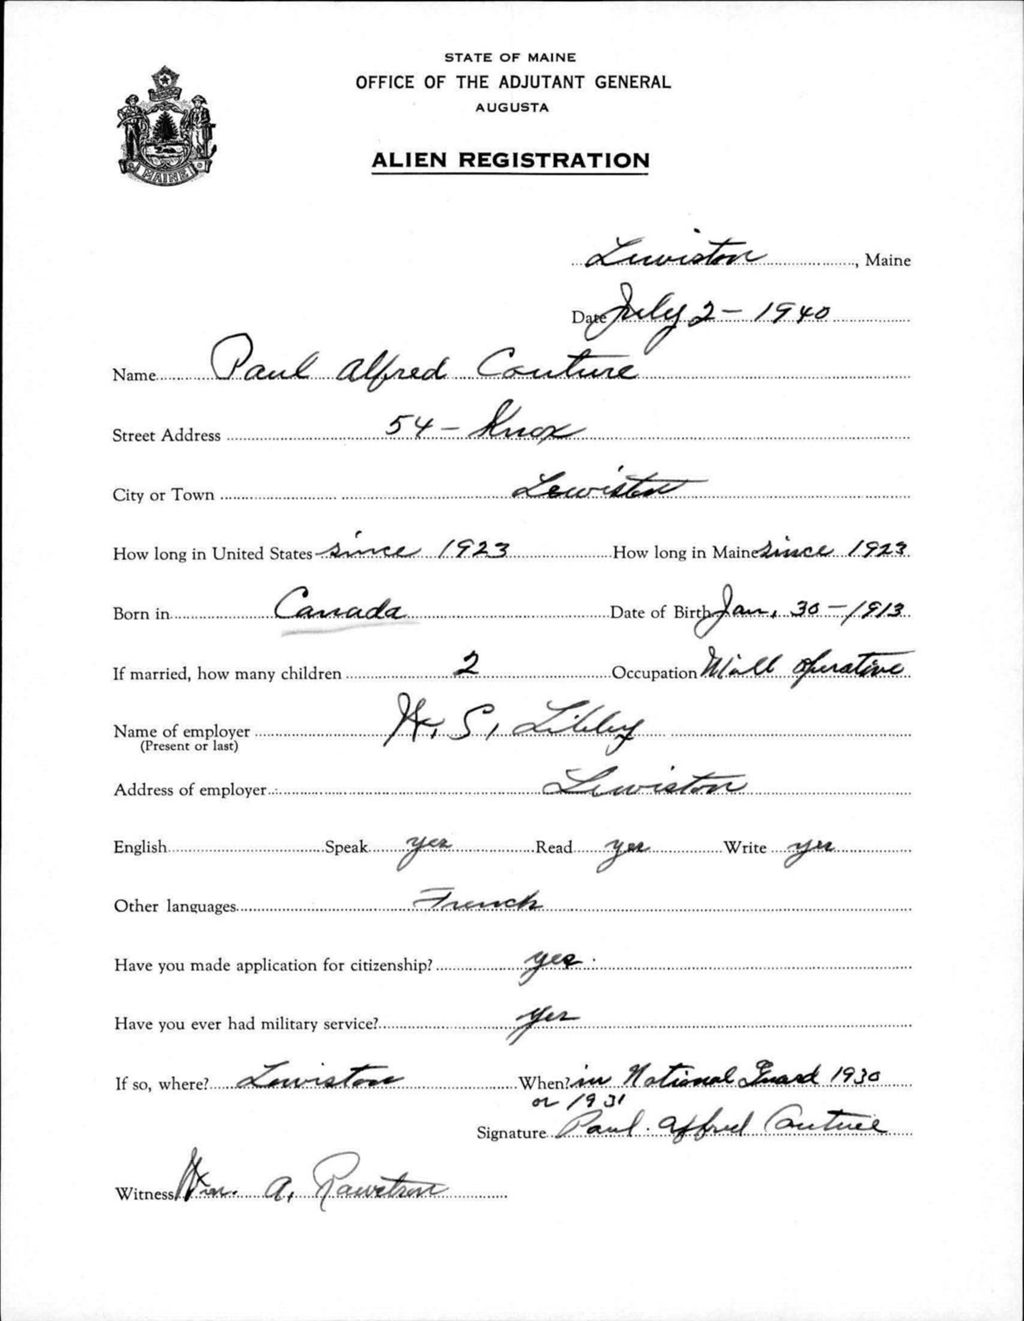 STATE OF MAINE
OFFICE OF THE ADJUTANT GENERAL
AUGUSTA
ALIEN REGISTRATION
MAINE
Lewiston, Maine
Date July 2 - 1940
Name Paul Alfred Couture
Street Address 54 - Knox
City or Town Lewiston
How long in United States since 1923 How long in Maine since 1923
Born in Canada Date of Birth Jan, 30 - 1913
If married, how many children 2 Occupation Mill operative
Name of employer W. S. Libbey
(Present or last)
Address of employer Lewiston
English Speak yes Read yes Write yes
Other languages French
Have you made application for citizenship? yes
Have you ever had military service? yes
If so, where? Lewiston When? in National Guard 1930
or 1931
Signature Paul. Alfred Couture
Witness Wm. A.